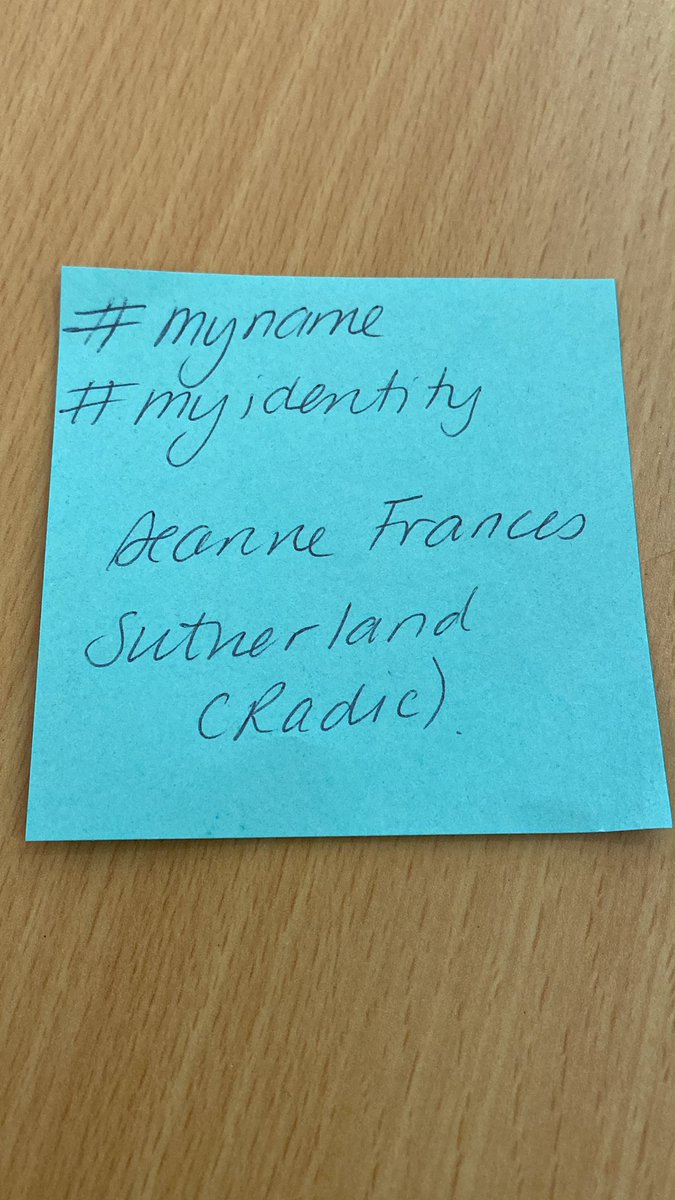 #myname
#myidentity
Deanne Frances
Sutherland
(Radic).